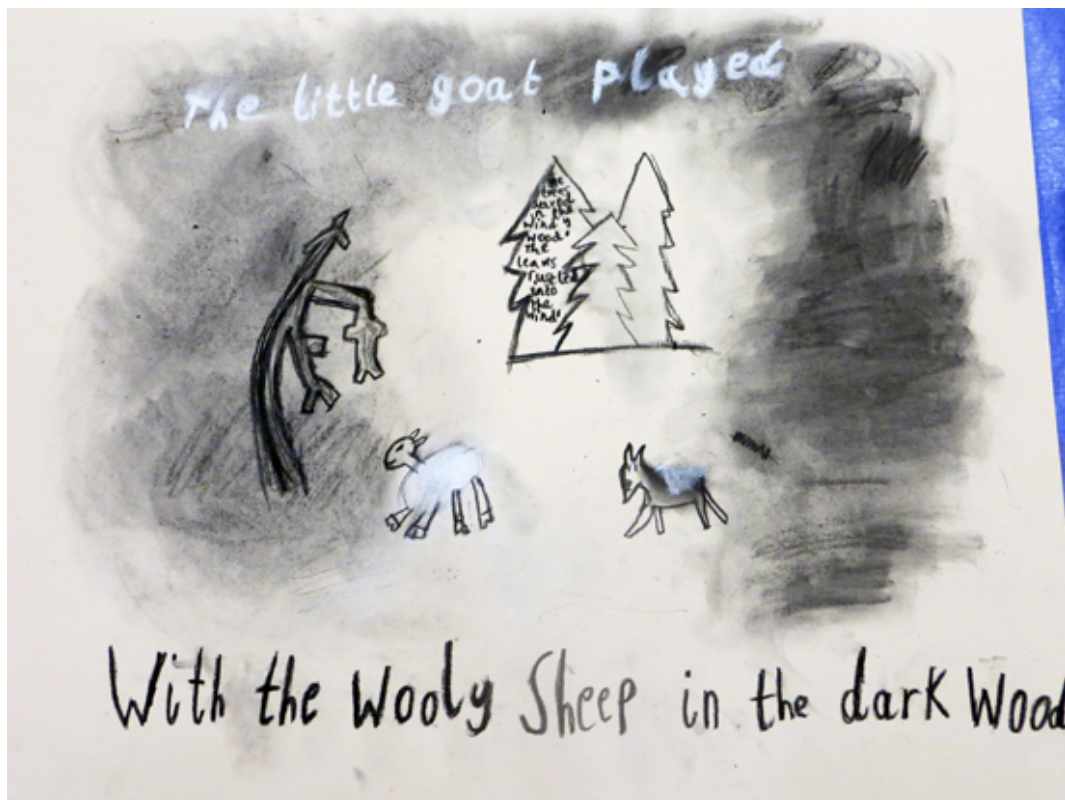 The little goat played
the
trees
in the
wind y
wood'
the
leavs
rustled
into
the
wind'
With the Wooly Sheep in the dark Wood